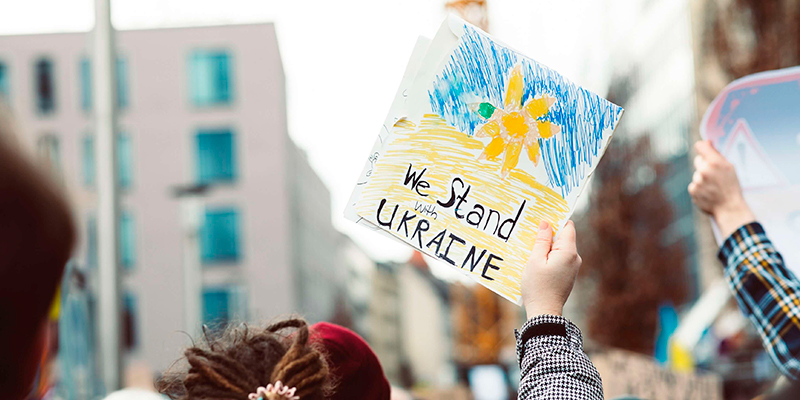 We Stand
with
UKRAINE